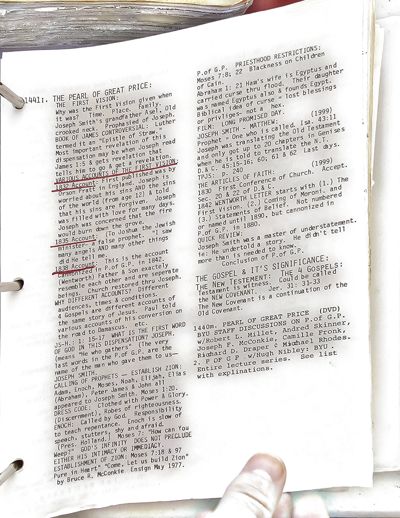 1441: THE PEARL OF GREAT PRICE:
THE FIRST VISION:
Why was the First Vision given when
it was? Time, Place, Family.
Joseph Smith's Grandfather Asel, Old
crooked neck, prophasied of Joseph.
BOOK OF JAMES CONTROVERSIAL: Luther
termed it an "Epistle of Straw."
Most important revelation of this
dispensation may be when Joseph read
James 1:5 & gets revelation that
tells him to go & get a revelation.
VARIOUS ACCOUNTS OF THE FIRST VISION:
1832 Account: First published was by
Orson Pratt in England. Joseph is
worried about his standing & that
of the world (from age 8) & told
that his sins are forgiven. Joseph
was filled with love for many days.
Joseph was concerned that the fire
would burn down the grove.
1835 Account: (To Joshua the Jewish
minister, a false prophet) He saw
many angels AND many other things
did He tell me.
1838 Account: This is the account
cannonized in P.o.f G.P. in 1842.
(Wentworth) Father & Son exactly
resemble each other and are separate
beings. Church restored thru Joseph.
WHY DIFFERENT ACCOUNTS? Different
audiences, times & conditions. The
4 Gospels are different accounts of
the same story of Jesus. Paul told
various accounts of his conversion on
the road to Damascus, etc.
JS-H: 1: 15-17 WHAT IS THE FIRST WORD
OF GOD IN THIS DISPENSATION? JOSEPH
(means "He who gathers" (The very
last words in the P.o.f G.P. are the
name of the man who gave them to us—
JOSEPH SMITH.
CALLING OF PROPHETS — ESTABLISH ZION:
Adam, Enoch, Moses, Noah, Elijah, Elias
(Abraham), Peter James & John all
appeared to Joseph Smith. Moses 1:2D.
DRESS CODE: Clothed with Power & Glory.
(Discerrment), Robes of righteousness.
ENOCH: Called by God. Responsibility
to teach repentance. Enoch is slow of
speech, stutters, shy and afraid.
(Pres. Holland.) Moses 7: "How can You
Weep?" GOD'S INFINITY DOES NOT PRECLUDE
EITHER HIS INTIMACY OR IMMEDIACY.
ESTABLISHMENT OF ZION: Moses 7:18 & 97
Pure in Heart" "Come, Let us build Zion"
by Bruce R. McConkie Ensign May 1977.
P.of G.P. PRIESTHOOD RESTRICTIONS:
Moses 7:8; 22 Blackness on Children
of Cain.
Abraham 1: 21 Ham's wife is Egyptus and
carried curse thru flood. Their daughter
was named Egyptus also & founds Egypt.
Biblical idea of curse - lost blessings
or privileges, not a hex.
FILM: LONG PROMISED DAY. (1999)
JOSEPH SMITH - MATTHEW:
Prophet - One who is called. Isa. 43:11
Joseph was translating the Old Testament
and got up to 20 chapters in Genises
only to be told to translate the N.T.
D.&C. 45:15,16, 60; 61 & 62 Last days.
1726 p. 240.
THE ARTICLES OF FAITH: (1999)
1830 First Conference of Church. Accept
Sec. 20 & 22 of D.& C.
1842 WENTWORTH LETTER starts with (1.) The
First Vision. (2.) Coming of Moroni, and
(3) Statements of Belief. Not numbered
or named until 1890, but cannonized in
P.o.f G.P. in 1880.
QUICK REVIEW:
Joseph Smith was a master of understatement.
ie: He undertold a story. He didn't tell
more than is needed to know's.
Conclusion of P.o.f G.P.
THE GOSPEL & IT'S SIGNIFICANCE:
THE NEW TESTAMENT: THE 4 GOSPELS:
Testament is witness. Could be called
the NEW COVENANT. Jer. 31: 31-33
The New Covenant is a continuation of the
Old Covenant.
1440m. PEARL OF GREAT PRICE (DVD)
BYU STUDY DISCUSSIONS ON P.of G.P.
w/Robert L. Millet, Andred Skinner,
Joseph F. McConkie, Camille Fronk,
Richard D. Draper & Michael Rhodes.
2. P OF G P w/Hugh Nibley: BYU.
Entire lecture series. See list
with explinations.